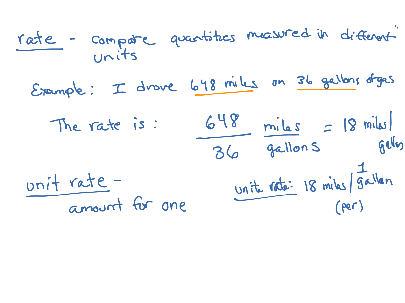 rate - compare quantities measured in different
units
Example: I drove 648 miles on 36 gallons of gas
The rate is: 648 miles / 36 gallons = 18 miles/gallon
unit rate -
amount for one
unit rate: 18 miles/1 gallon
(per)